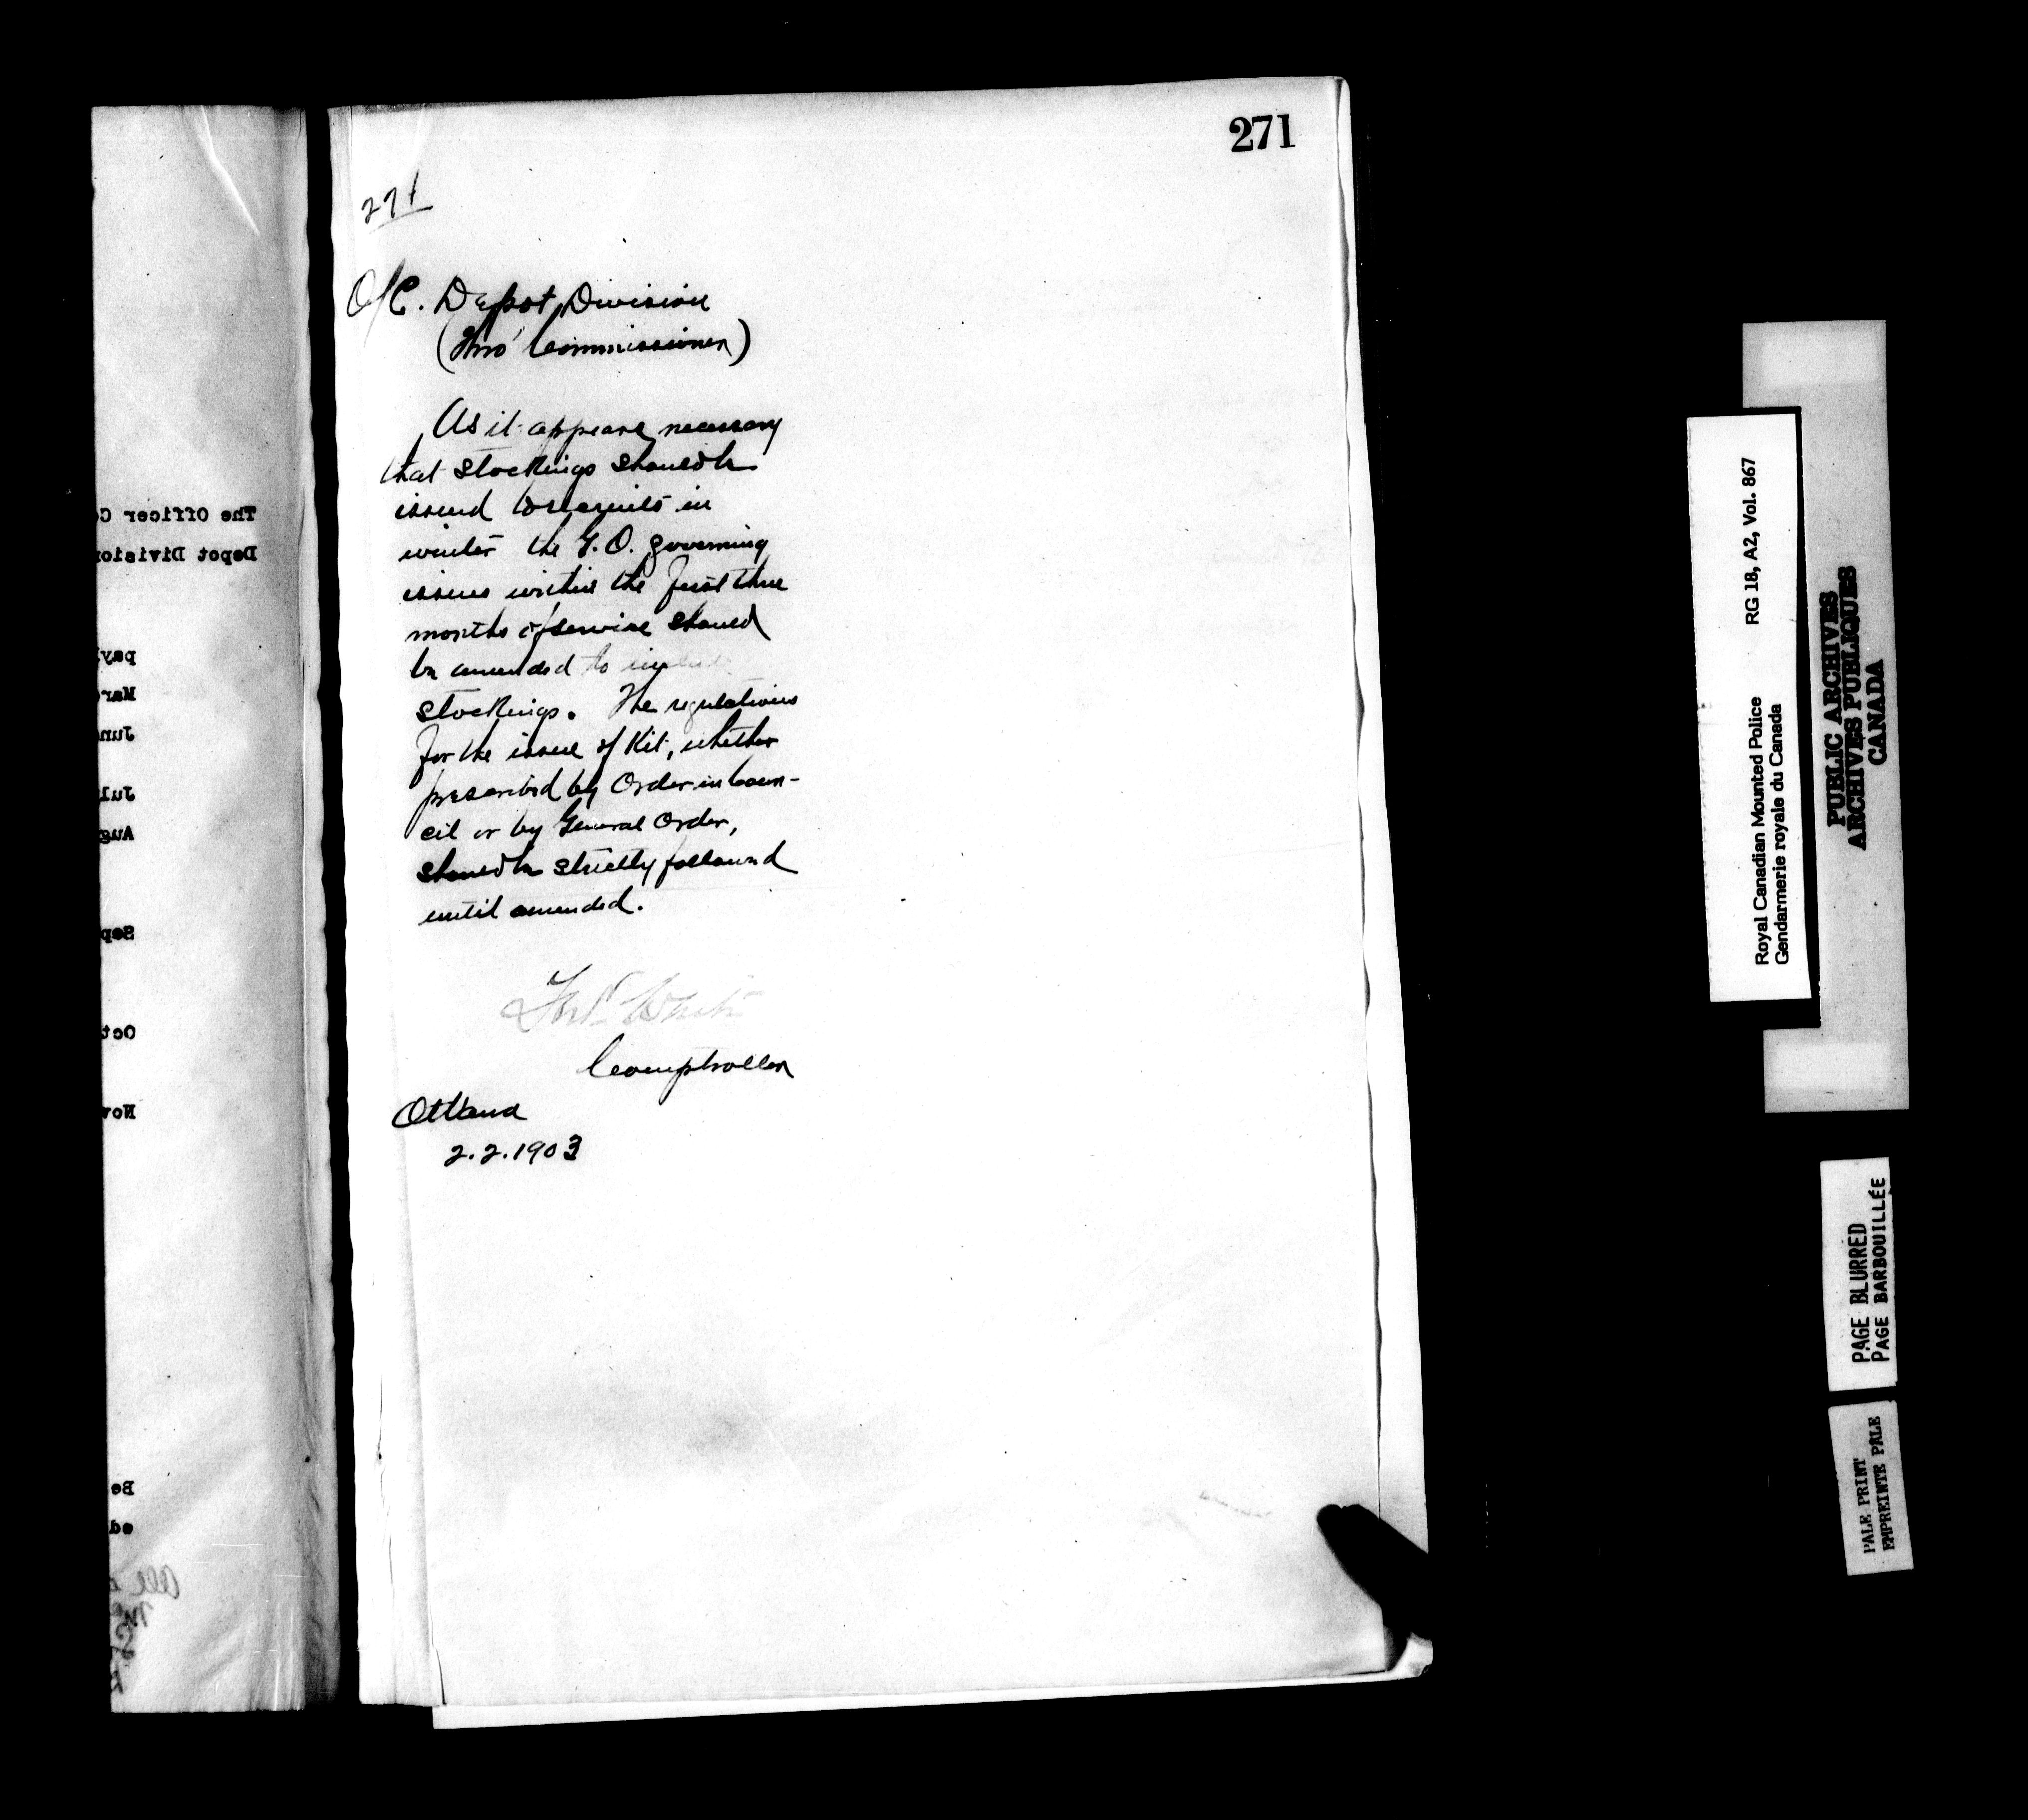 271
271
O/C. Depot Division
(Thro' Commissioner)
As it appears necessary
that stockings should be
issued to recruits in
winter the G.O. governing
issues within the first three
months of service should
be amended to include
stockings. The regulations
for the issue of Kit, whether
prescribed by Order in Coun-
cil or by General Order,
should be strictly followed
until amended.
Fred White
Comptroller
Ottawa
2.2.1903
The Officer Co
Depot Division
pay
Mar
Jun
Jul
Aug
Sep
Oct
Nov
Be
ed
Royal Canadian Mounted Police RG 18, A2, Vol. 867
Gendarmerie royale du Canada
PUBLIC ARCHIVES
ARCHIVES PUBLIQUES
CANADA
PAGE BLURRED
PAGE BARBOUILLÉE
PALE PRINT
EMPREINTE PÂLE